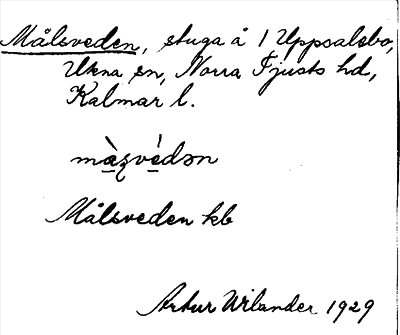 Målsveden, stuga å 1 Uppsalsbo,
Ukna sn, Norra Tjusts hd,
Kalmar l.
màʂvédən
Målsveden kb
Artur Wilander 1929